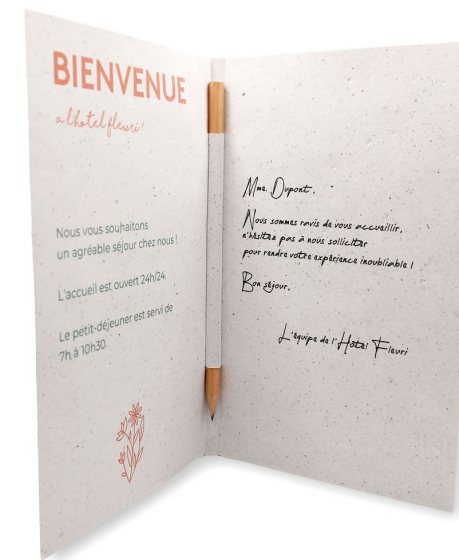 BIENVENUE
a l'hotel fleuri !
Nous vous souhaitons
un agréable séjour chez nous !
L'accueil est ouvert 24h/24.
Le petit-déjeuner est servi de
7h à 10h30.
Mme. Dupont,
Nous sommes ravis de vous accueillir,
n'hésitez pas à nous solliciter
pour rendre votre expérience inoubliable !
Bon séjour.
L'équipe de l'Hôtel Fleuri